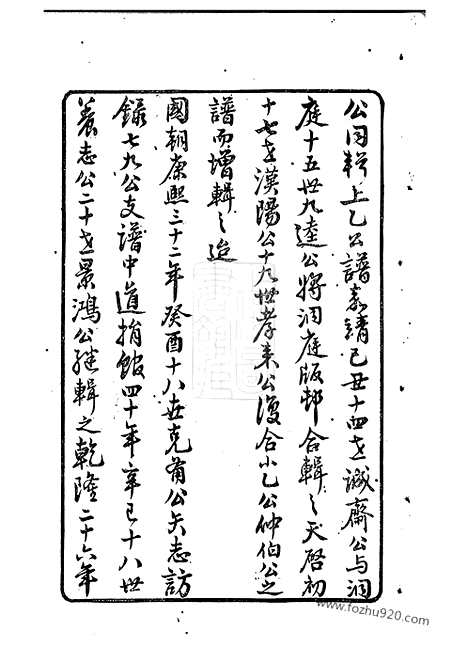 公同輯上乙公譜嘉靖己丑十四世誠齋公与洞
庭十五世九逵公將洞庭版邨合輯之天啓初
十七世漢陽公十九世孝來公復合小乙公仲伯公之
譜而增輯之迨
國朝康熙三十二年癸酉十八世克甫公矢志訪
錄七九公支譜中道捐館四十年辛巳十八世
養志公二十世景鴻公継輯之乾隆二十六年
www.fozhu920.com